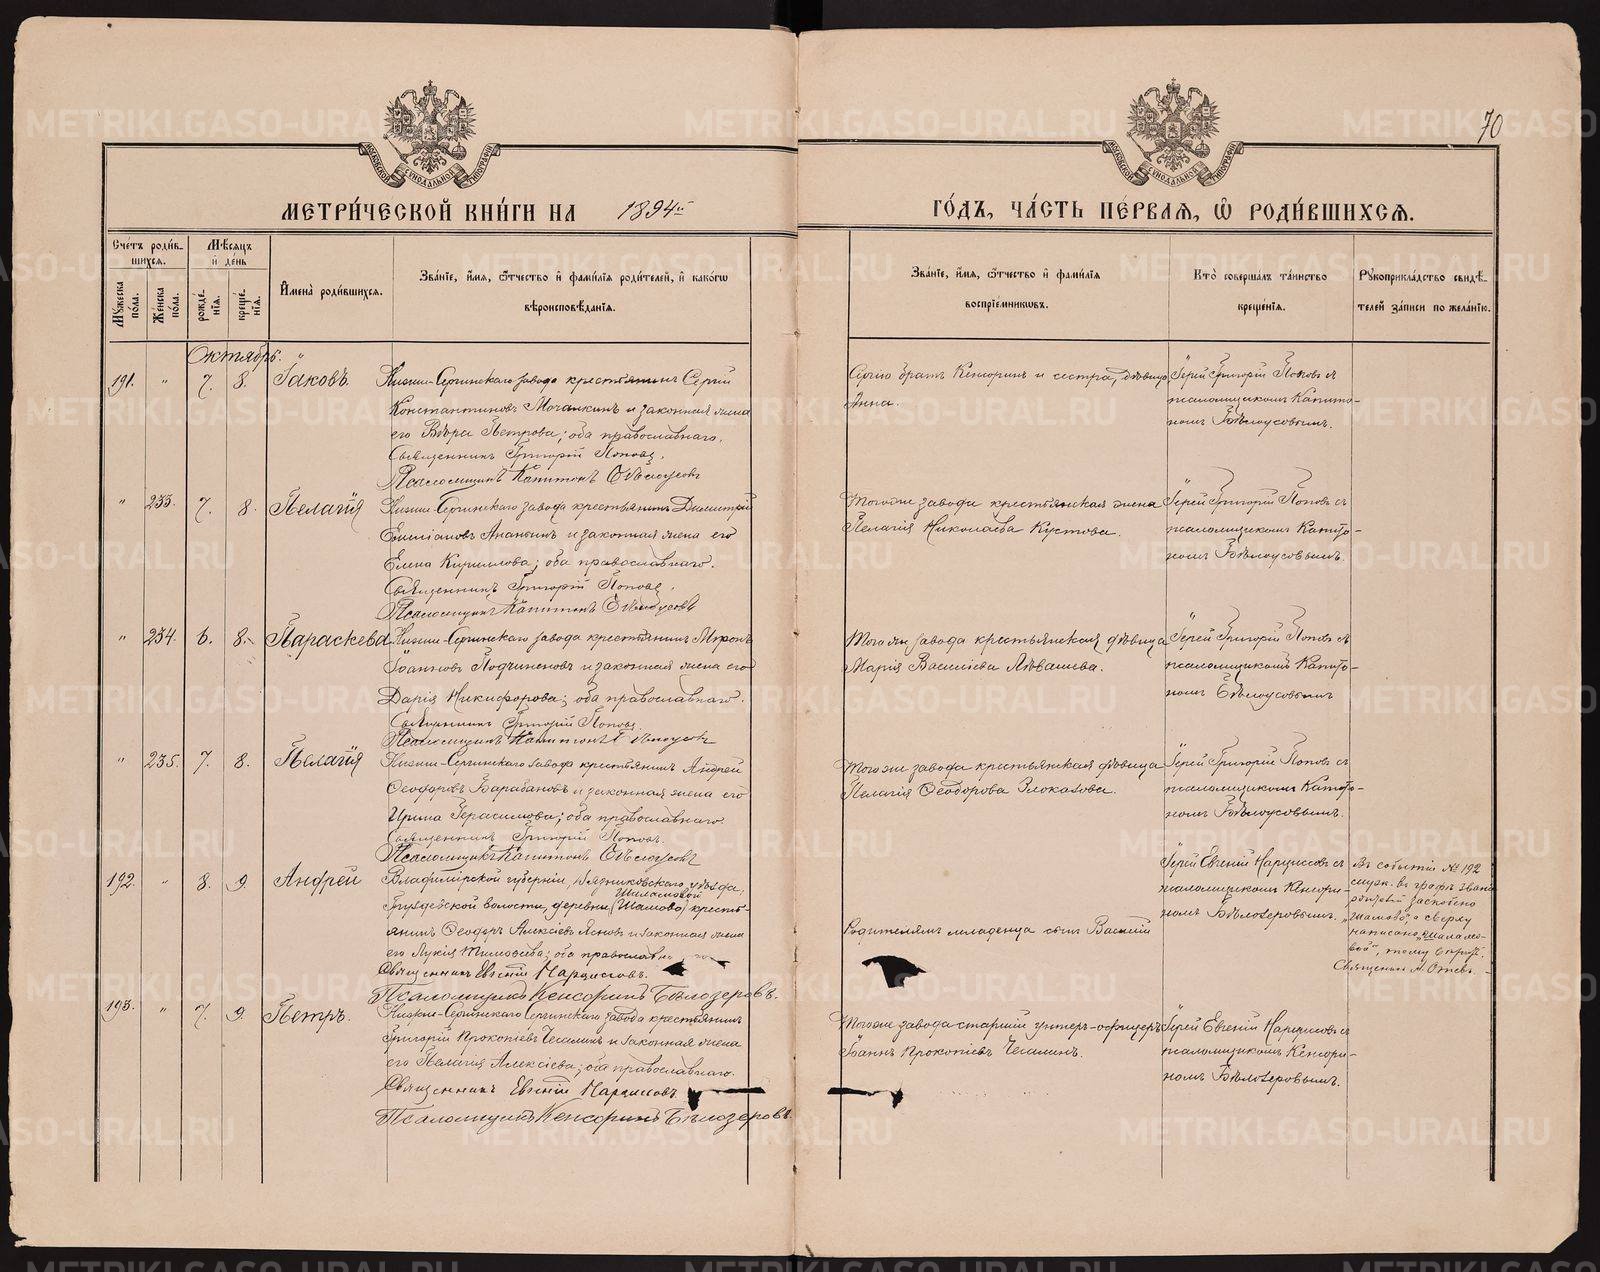 70
МЕТРИ́ЧЕСКОЙ КНИ́ГИ НА 1894й
ГО́ДЪ, ЧА́СТЬ ПЕ́РВАЯ, Ѡ РОДИ́ВШИХСЯ.
Сче́тъ роди́в-
шихся.
Му́жеска по́ла.
Же́нска по́ла.
Мѣ́сяцъ и де́нь
рожде́нія.
креще́нія.
Имена̀ роди́вшихся.
Зва́ніе, и́мя, ѻ́тчество и фами́лія роди́телей, и како́гѡ
вѣроисповѣ́данія.
Зва́ніе, и́мя, ѻ́тчество и фами́лія
воспріе́мниковъ.
Кто̀ соверша́лъ та́инство
креще́нія.
Рукоприкла́дство свидѣ́-
телей за́писи по жела́нію.
Октябрь.
191. " 7. 8. Іаковъ.
Нижне-Сергинскаго завода крестьянинъ Сергій
Константиновъ Мочалкинъ и законная жена
его Вѣра Петрова; оба православнаго.
Священникъ Григорій Поповъ.
Псаломщикъ Капитонъ Бѣлоусовъ
Сергію братъ Кенсоринъ и сестра, дѣвица
Анна.
Іерей Григорій Поповъ съ
псаломщикомъ Капито-
номъ Бѣлоусовымъ.
" 233. 7. 8. Пелагія
Нижне-Сергинскаго завода крестьянинъ Димитрій
Емиліановъ Ананьинъ и законная жена его
Елена Кириллова; оба православнаго.
Священникъ Григорій Поповъ.
Псаломщикъ Капитонъ Бѣлоусовъ
Тогоже завода крестьянская жена
Пелагія Николаева Кустова.
Іерей Григорій Поповъ съ
псаломщикомъ Капито-
номъ Бѣлоусовымъ.
" 234. 6. 8. Параскева
Нижне-Сергинскаго завода крестьянинъ Миронъ
Іоанновъ Подчиненовъ и законная жена его
Дарія Никифорова; оба православнаго.
Священникъ Григорій Поповъ
Псаломщикъ Капитонъ Бѣлоусовъ
Тогоже завода крестьянская дѣвица
Марія Василіева Лѣвашева.
Іерей Григорій Поповъ съ
псаломщикомъ Капито-
номъ Бѣлоусовымъ
" 235. 7. 8. Пелагія
Нижне-Сергинскаго завод. крестьянинъ Андрей
Ѳеодоровъ Барабановъ и законная жена его
Ирина Герасимова; оба православнаго.
Священникъ Григорій Поповъ.
Псаломщикъ Капитонъ Бѣлоусовъ
Тогоже завода крестьянская дѣвица
Пелагія Ѳеодорова Злоказова.
Іерей Григорій Поповъ съ
псаломщикомъ Капито-
номъ Бѣлоусовымъ.
192. " 8. 9. Андрей
Владимірской губерніи, Вязниковскаго уѣзда,
Груздевской волости, деревни (Шамово) Шаламовой кресть-
янинъ Ѳеодоръ Алексіевъ Ясновъ и законная жена
его Лукія Тимоѳеева; оба православн
Священникъ Евгеній Нарциссовъ.
Псаломщикъ Кенсоринъ Бѣлозеровъ.
Родителямъ младенца сынъ Василій
Іерей Евгеній Нарциссовъ съ
псаломщикомъ Кенсори-
номъ Бѣлозеровымъ.
Въ событіи № 192
въ графѣ званіе
заскоблено
"Шамово", а сверху
написано "Шаламо-
вой", тому
Священникъ
193. " 7. 9. Петръ.
Нижне-Сергинскаго Сергинскаго завода крестьянинъ
Григорій Прокопіевъ Чесалинъ и законная жена
его Пелагія Алексіева; оба православнаго.
Священникъ Евгеній Нарциссовъ.
Псаломщикъ Кенсоринъ Бѣлозеровъ.
Тогоже завода старшій унтеръ-офицеръ
Іоаннъ Прокопіевъ Чесалинъ.
Іерей Евгеній Нарциссовъ съ
псаломщикомъ Кенсори-
номъ Бѣлозеровымъ.
METRIKI.GASO-URAL.RU